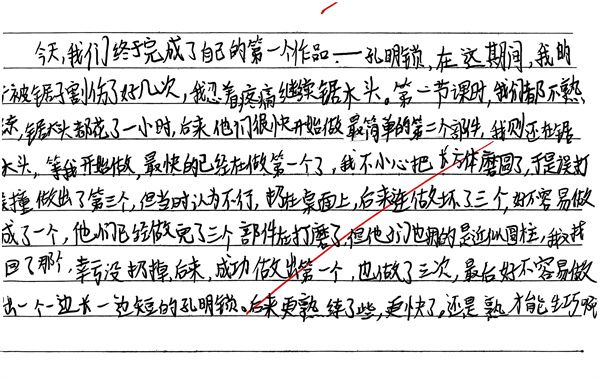 今天,我们终于完成了自己的第一个作品——孔明锁,在这期间,我的
被锯子割伤了好几次,我忍着疼痛继续锯木头。第一节课时,我们都不熟
锯木头都花了一小时,后来他们很快开始做最简单的第二个部件,我则还在锯
木头,等我开始做,最快的已经在做第一个了,我不小心把长方体磨圆了,于是误打
撞做出了第三个,但当时认为不行,扔在桌面上,后来连做坏了三个,好不容易做
成了一个,他们已经做完了三个部件在打磨了,但他们也拥的是近似圆柱,我找
回了那个,幸亏没扔掉,后来,成功做出第一个,也做了三次,最后好不容易做
出一个一边长一边短的孔明锁。后来更熟练了些,更快了。还是熟才能生巧啊